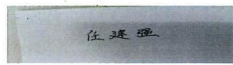 任建强